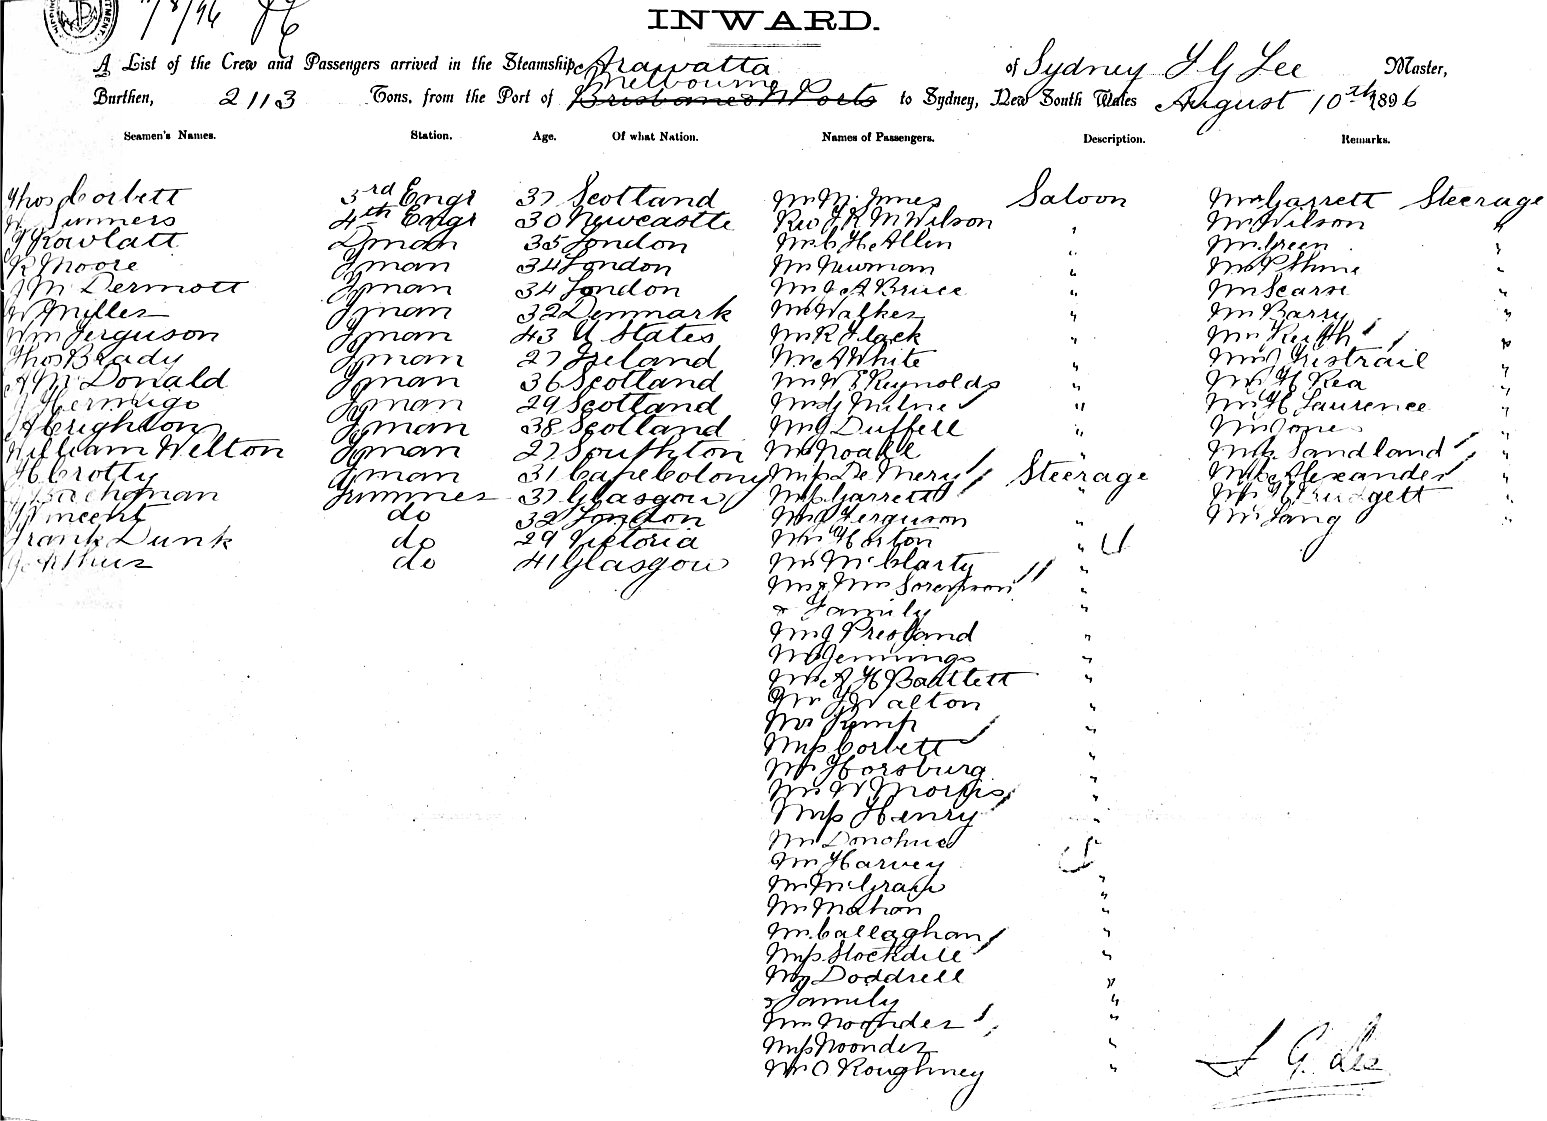 INWARD.
A List of the Crew and Passengers arrived in the Steamship Arawatta of Sydney Master,
Melbourne
Burthen, 2113 Tons, from the Port of Brisbane & N Ports to Sydney, New South Wales August 10th 1896
Seamen's Names. Station. Age. Of what Nation. Names of Passengers. Description. Remarks.
Thos Corbett 3rd Engr 37 Scotland Mr M. Innes Saloon Mrs Garrett Steerage
Summers 4th Engr 30 Newcastle Rev J R M Wilson " Mr Wilson "
Rowlatt 35 London Mr C H Allen " Mr Green "
R Moore Fman 34 London Mr Newman "
McDermott Fman 34 London Mr J A Bruce " Mr Scarse "
W Miller Fman 32 Denmark Mr Walker " Mr Barry "
Wm Ferguson Fman 43 U States Mr R Flack " "
Thos Brady Fman 27 Ireland Mr A White " "
A McDonald Fman 36 Scotland Mr W E Reynolds " Mr H Rea "
Fman 29 Scotland Milne " Mr H Laurence "
A Crighton Fman 38 Scotland Mr J Duffell " Mr Jones "
William Welton Fman 27 Southton Mr Noall " Sandland "
H Crotty Fman 31 Cape Colony Miss De Mery Steerage Alexander "
Trimmer 37 Glasgow Garrett " "
Vincent do 32 London Mr J Ferguson " Mr Lang "
Frank Dunk do 29 Victoria Mr Horton "
Arthur do 41 Glasgow Mr McClarty "
Mr & Mrs Sorenson "
& Family "
Mr J Presland "
Mr Jennings "
Mr A H Bartlett "
Mr J Walton "
Mr Kemp "
Miss Corbett "
Mr Horsburg "
Mr W Morris "
Miss Henry "
Mr Donohue
Mr Harvey
Mr McGrath "
Mr Mahon "
Mr Callaghan "
Miss Stockdill "
Mr Doddrell "
& Family "
Mrs Noonder "
Miss Noonder "
Mr O Roughney "